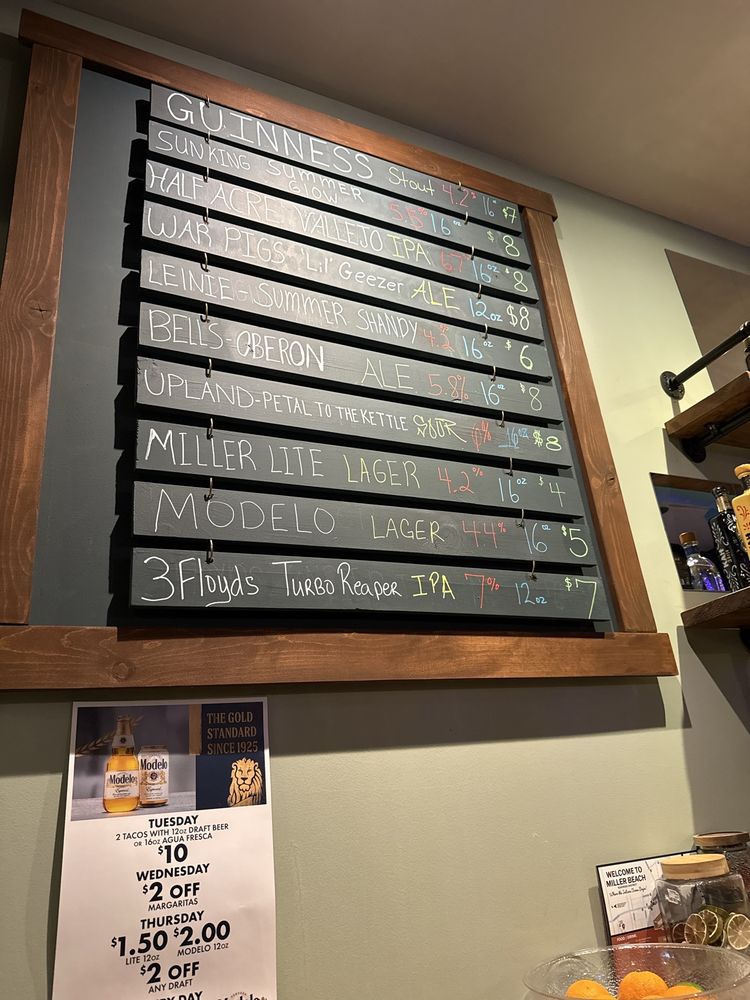 GUINNESS Stout 4.2% 16oz $7
SUN KING SUMMER GLOW 5.5% 16oz $8
HALF ACRE VALLEJO IPA 6.7% 16oz $8
WAR PIGS 'Lil' Geezer ALE 12oz $8
LEINIES SUMMER SHANDY 4.2% 16oz $6
BELLS-OBERON ALE 5.8% 16oz $8
UPLAND-PETAL TO THE KETTLE SOUR % 16oz $8
MILLER LITE LAGER 4.2% 16oz $4
MODELO LAGER 4.4% 16oz $5
3Floyds TURBO REAPER IPA 7% 12oz $7
THE GOLD
STANDARD
SINCE 1925
Modelo
Modelo
TUESDAY
2 TACOS WITH 12oz DRAFT BEER
OR 16oz AGUA FRESCA
$10
WEDNESDAY
$2 OFF
MARGARITAS
THURSDAY
$1.50 $2.00
LITE 12oz MODELO 12oz
$2 OFF
ANY DRAFT
DAY
WELCOME TO
MILLER BEACH
FOOD | DRINK